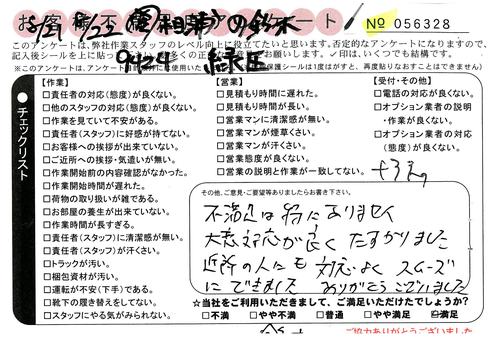 お客様不満足アンケート
No 056328
このアンケートは、弊社作業スタッフのレベル向上に役立てたいと思います。否定的なアンケートになりますので、
9424 緑区
チェックリスト
【作業】
□責任者の対応(態度)が良くない。
□他のスタッフの対応(態度)が良くない。
□作業を見ていて不安がある。
□責任者(スタッフ)に好感が持てない。
□お客様への挨拶が出来ていない。
□ご近所への挨拶・気遣いが無い。
□作業開始前の内容確認がなかった。
□作業開始時間が遅れた。
□荷物の取り扱いが雑である。
□お部屋の養生が出来ていない。
□作業時間が長すぎる。
□責任者(スタッフ)に清潔感が無い。
□責任者(スタッフ)が汗くさい。
□トラックが汚い。
□梱包資材が汚い。
□運転が不安(下手)である。
□靴下の履き替えをしてない。
□スタッフにやる気がみられない。
【営業】
□見積もり時間に遅れた。
□見積もり時間が長い。
□営業マンに清潔感が無い。
□営業マンが煙草くさい。
□営業マンが汗くさい。
□営業態度が良くない。
□営業の説明と作業が一致してない。
【受付・その他】
□電話の対応が良くない。
□オプション業者の説明
・作業が良くない。
□オプション業者の対応
(態度)が良くない。
その他、ご意見・ご要望等ありましたらお書き下さい。
不満足は特にありませんく
大変対応が良く たすかりました
近所の人にも 対応よく スムーズ
にできました ありがとうございました
☆当社をご利用いただきまして、ご満足いただけたでしょうか?
□不満 □やや不満 □普通 □やや満足 □満足
ご協力ありがとうございました